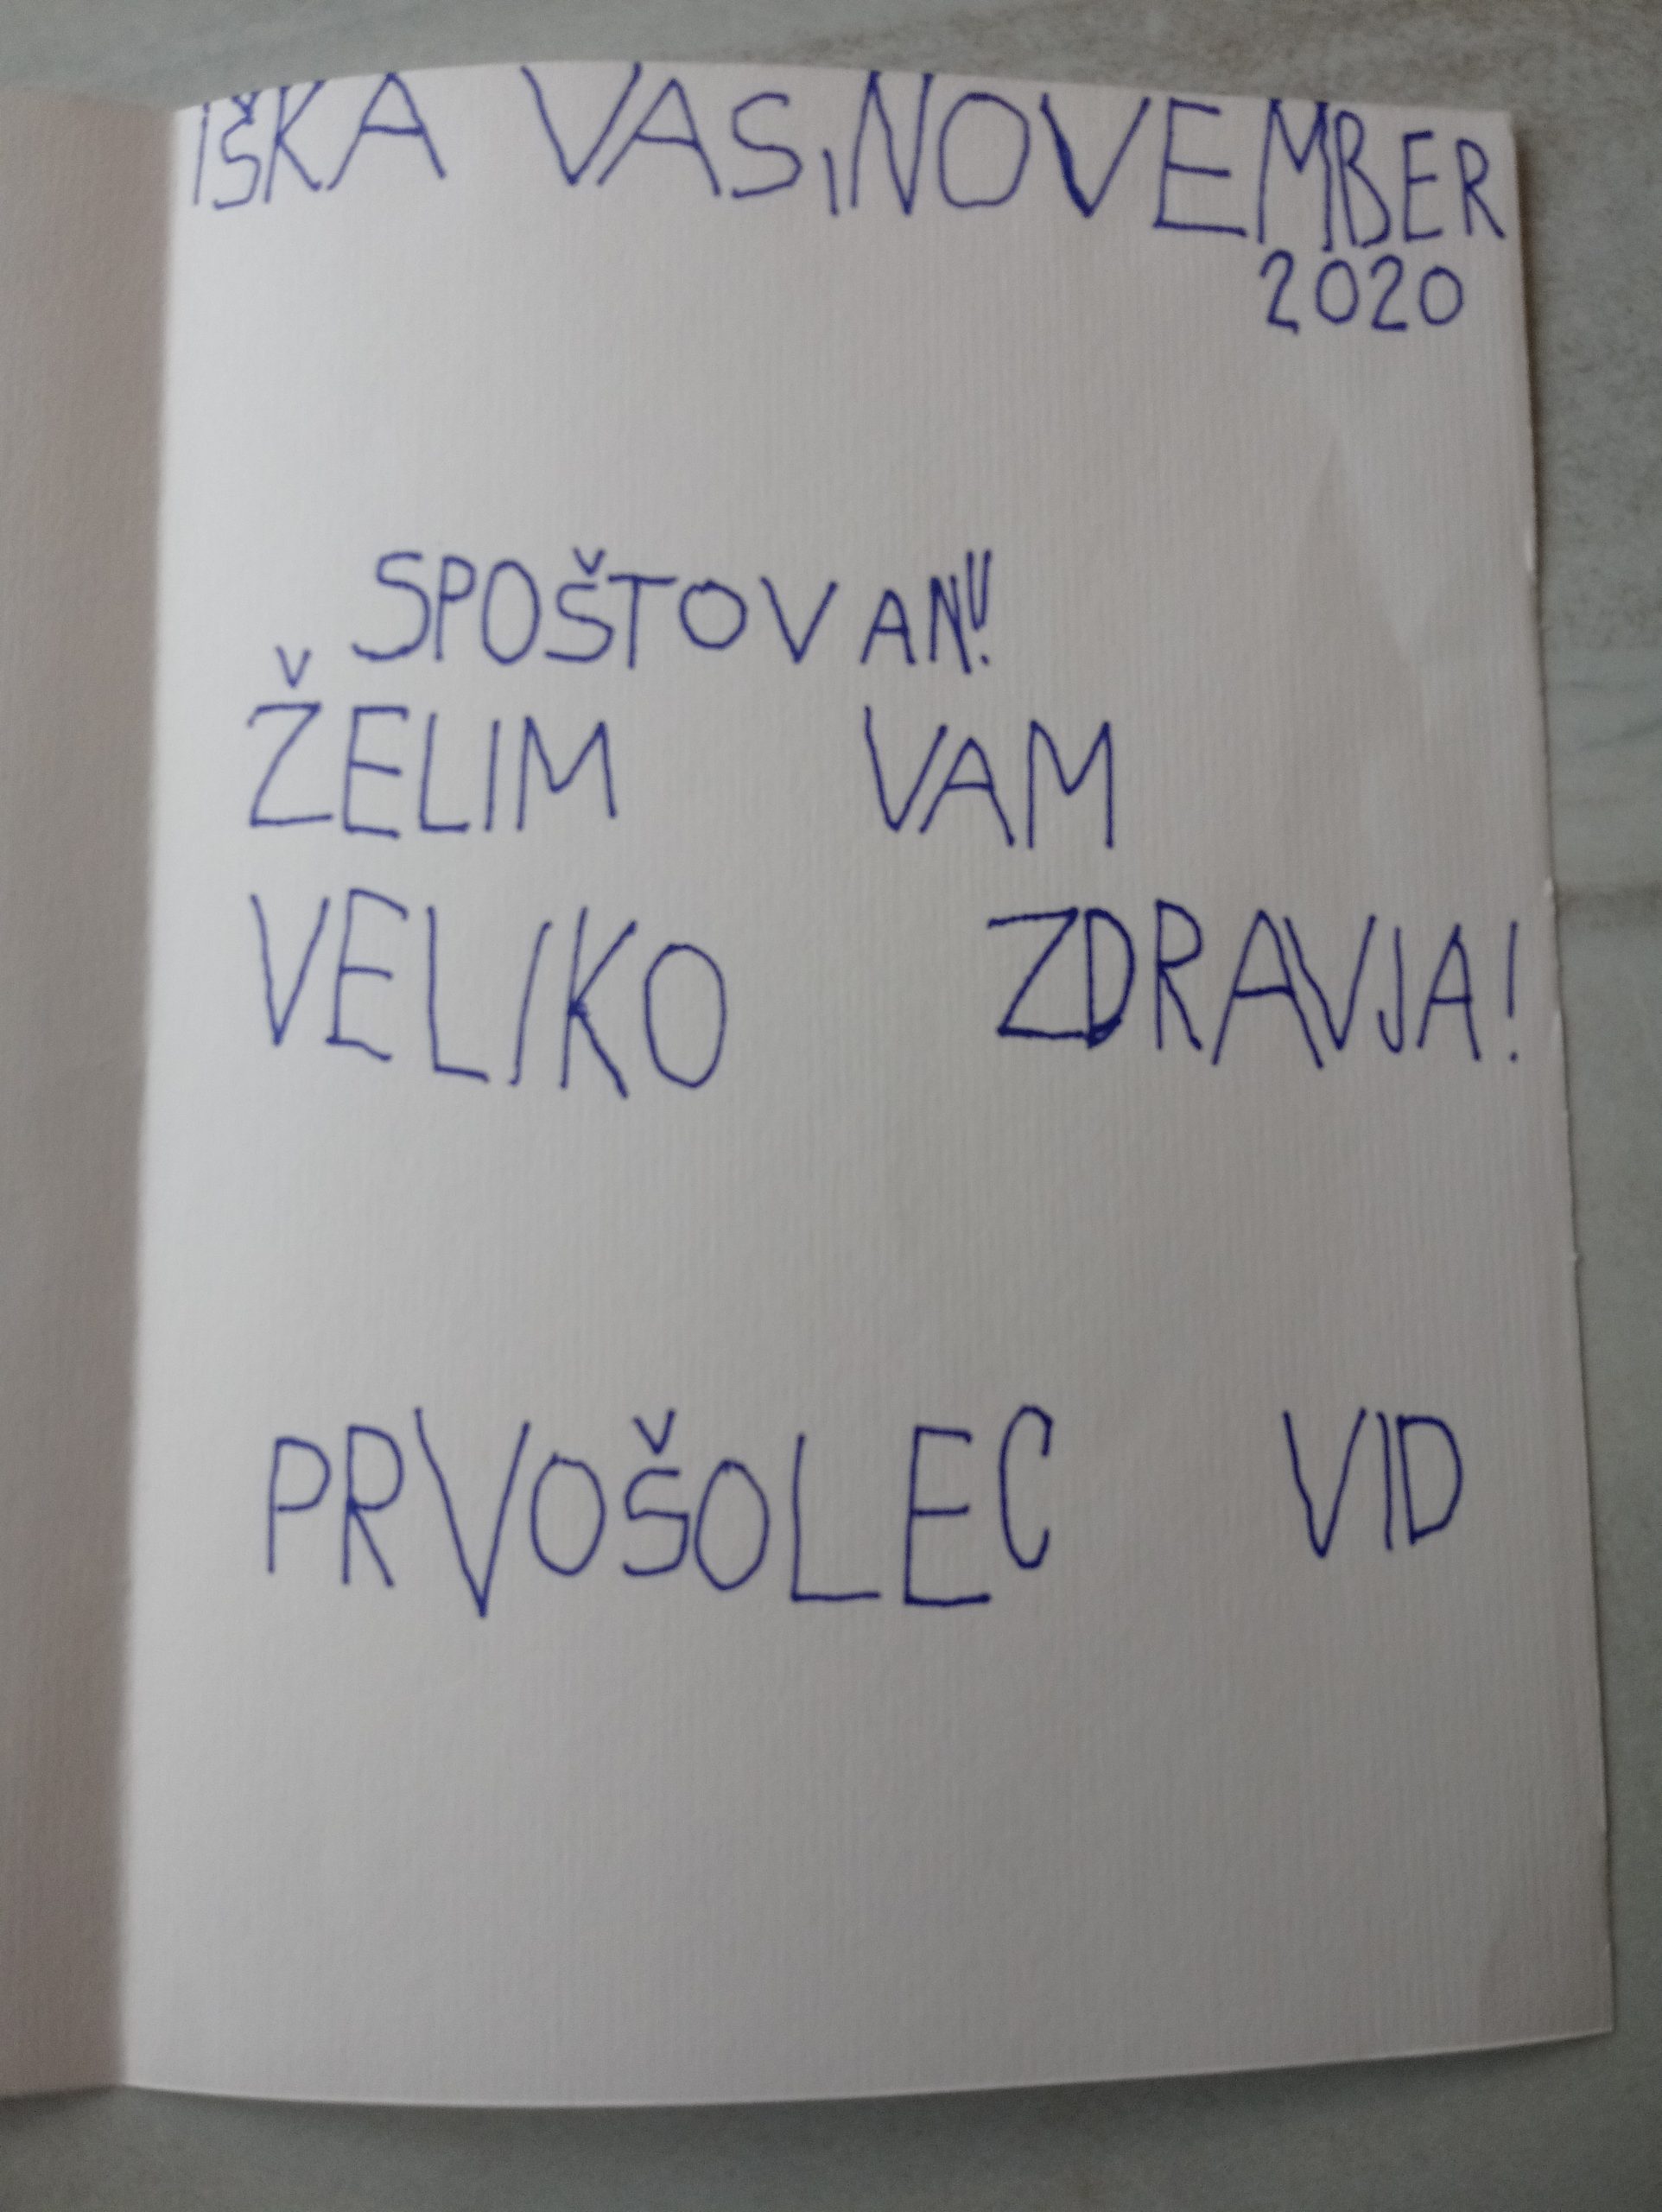 IŠKA VAS, NOVEMBER
2020
SPOŠTOVANI!
ŽELIM VAM
VELIKO ZDRAVJA!
PRVOŠOLEC VID